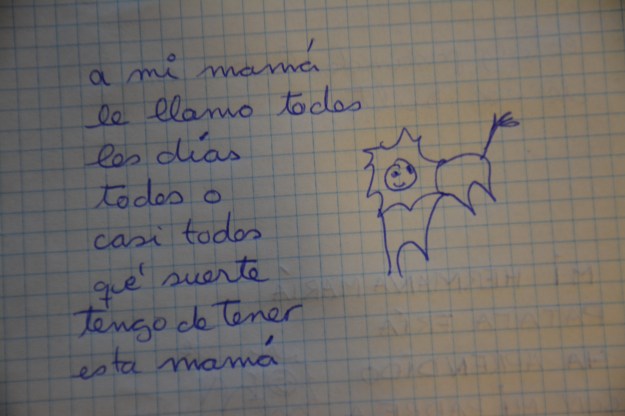 a mi mamá
le llamo todos
los días
todos o
casi todos
qué suerte
tengo de tener
esta mamá